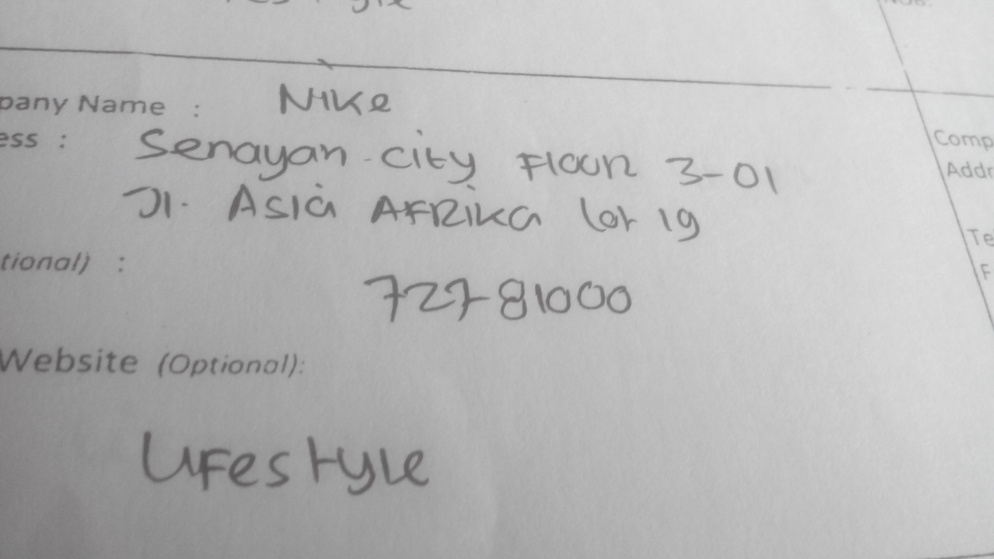 pany Name : Nike
ess : Senayan city Floor 3-01
Jl. Asia Afrika Lot 19
tional) :
727-81000
Website (Optional):
Lifestyle
Comp
Addr
Te
F